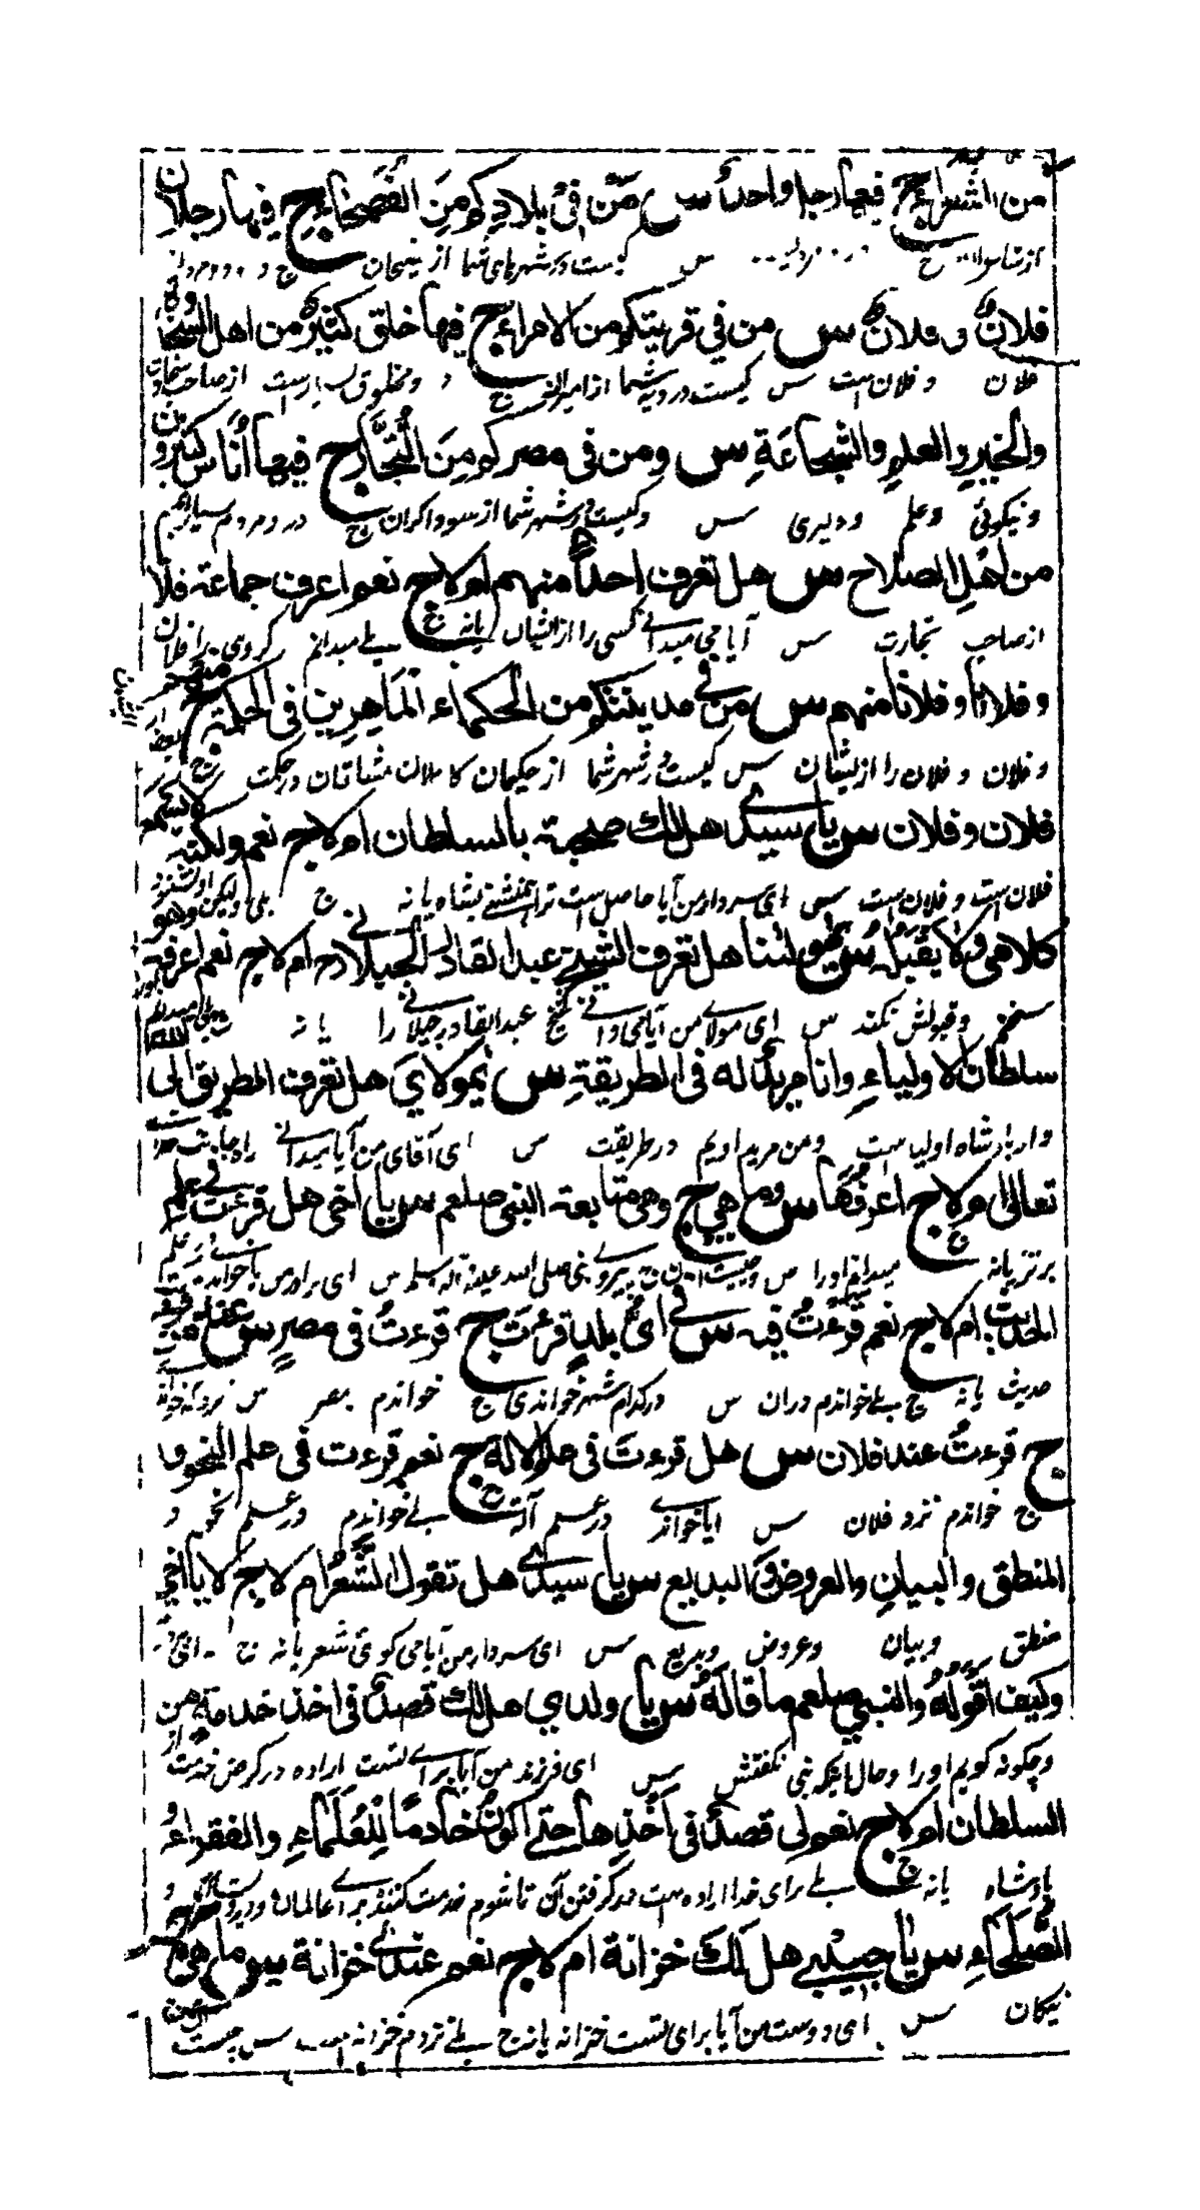 من الشعراءِ ج فيها رجلا واحداً س مَن في بلادِكم مِنَ الفُصَحاءِ ج فيها رجلانِ
از شما س كيست در شهرهای شما از فصيحان ج
فلانٌ و فلانٌ س من في قريتكم من الامراءِ ج فيها خلق كثيرٌ من اهل السخاوة
فلان و فلان است س كيست در ديه شما از اميران ج و مخلوق بسيار است از صاحب سخاوت
والخيرِ والعلمِ والشجاعَةِ س ومن في مصركم مِنَ التُّجَّارِ ج فيها أُناس كثيرون
و نيكوئی و علم و دليری س و كيست در شهر شما از سوداگران ج در و مردم بسيار
من اهلِ الصلاح س هل تعرف احداً منهم ام لا ج نعم اعرف جماعة فلانا
از صاحب تجارت س آيا می ميدانے كسی را از ايشان يا نه ج بلے ميدانم گروهی را فلان
و فلانا و فلانا منهم س من في مدينتكم من الحكماء المَاهِرِين في الحكمة ج
و فلان و فلان را از ايشان س كيست در شهر شما از حكيمان كاملان مشاقان در حكمت ج
فلان و فلان س يا سيدے هل لك صحبة بالسلطان ام لا ج نعم ولكنه لا يسمع
فلان است و فلان است س ای سردار من آيا حاصل است ترا همنشينے بشاه يا نه ج بلی وليكن او نشنود
كلامي ولا يقبله س يا مولٰنا هل تعرف الشيخ عبد القادر الجيلانے ام لا ج نعم اعرفه وهو
سخنم و قبولش نكند س ای مولاے من آيا می دانے شيخ عبد القادر جيلانے را يا نه
سلطان الاولياءِ وانا مريدٌ له في الطريقةِ س يا مولايَ هل تعرف الطريق الى الله
و او بادشاه اوليا است و من مريد اويم در طريقت س ای آقای من آيا ميدانے راه جانب خدا
تعالى ام لا ج اعرفها س وما هي ج وهي متابعة النبي صلعم س يا اخي هل قرءت في علم
برتر يا نه ج ميدانم او را س و چيست آن ج پيروے نبی صلی الله عليه و آله وسلم س ای برادر من آيا خوانده در علم
الحديث ام لا ج نعم قرءتُ فيه س في ایِّ بلدٍ قرءتَ ج قرءتُ في مصرٍ س عند من قرءت
حديث يا نه ج بلے خواندم دران س در كدام شهر خواندی ج خواندم بمصر س نزد كه خواندے
ج قرءتُ عند فلان س هل قرءتَ في علم الآلة ج نعم قرءت في علم النحو و
ج خواندم نزد فلان س آيا خواندے در علم آلت ج بلے خواندم در علم نحو و
المنطق والبيانِ والعروض والبديع س يا سيدے هل تقول الشعر ام لا ج لا يا اخي
منطق و بيان و عروض و بديع س ای سردار من آيا می گوئی شعر يا نه ج
وكيف اقوله والنبي صلعم ما قالَهُ س يا ولدي هل لك قصدٌ في اخذ خدمة من
و چگونه گويم او را و حال اينكه نبی نگفتش س ای فرزند من آيا براے تست اراده در گرفتن خدمت از
السلطان ام لا ج نعم لی قصدٌ في اخذها حتے اكونَ خادماً لِلعُلَماءِ والفقراءِ و
بادشاه يا نه ج بلے برای خدا اراده هست در گرفتن آن تا شوم خدمت كننده براے عالمان و درويشان و
الصُّلحاءِ س يا حبيبے هل لَكَ خزانة ام لا ج نعم عندے خزانة س وما هي
نيكان س ای دوست من آيا برای تست خزانه يا نه ج بلے نزدم خزانه است س چيست